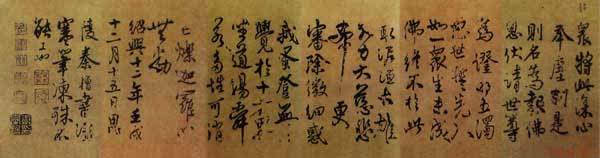 衆將此深心
奉塵剎是
則名為報佛
恩伏請世尊
為證明五濁
惡世誓先入
如一衆生未成
佛終不於此
取泥洹大雄
大力大慈悲
希更
審除微細惑
我蚤登無上
覺於十方界
坐道場舜
若多性可消
亡爍迦羅心
無動
紹興十二年壬戌
十二月十五日思
陵秦檜書
寒筆凍殊不
能工